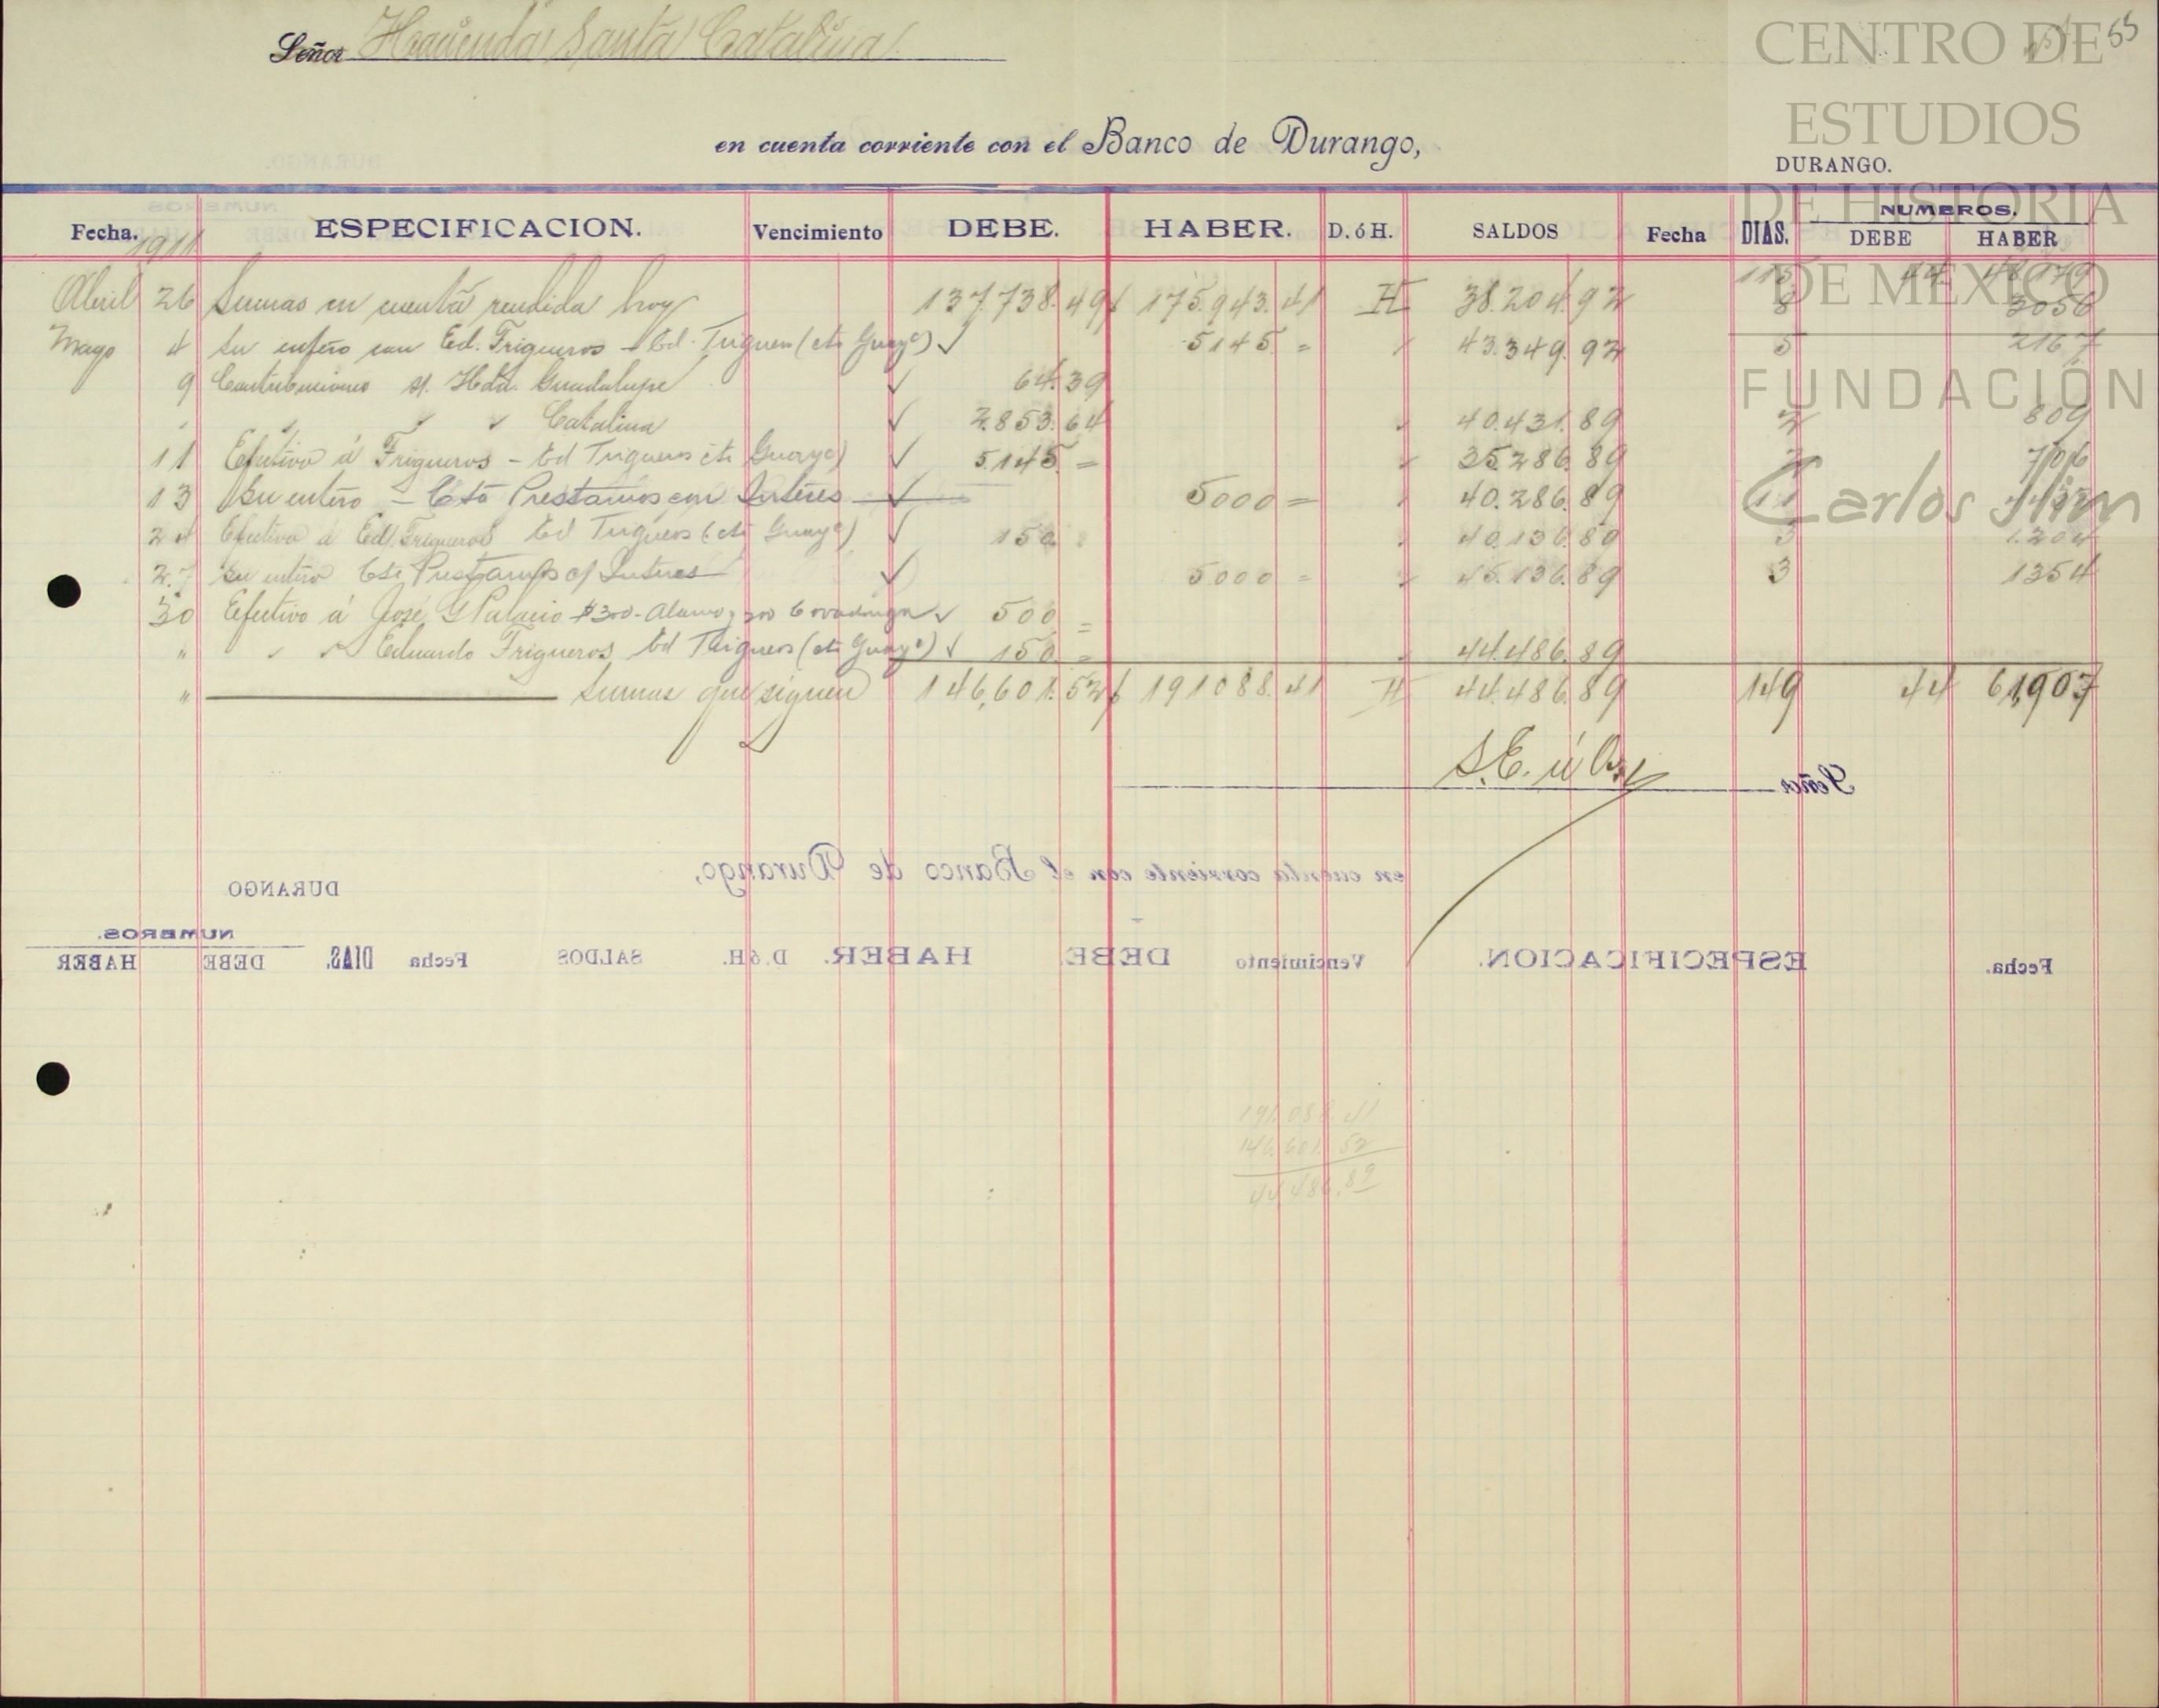 55
Señor Hacienda Santa Catalina
CENTRO DE
ESTUDIOS
DE HISTORIA
DE MÉXICO
FUNDACIÓN
Carlos Slim
en cuenta corriente con el Banco de Durango,
DURANGO.
Fecha. ESPECIFICACION. Vencimiento DEBE. HABER. D. ó H. SALDOS Fecha DIAS. NUMEROS. DEBE HABER
1911
Abril 26 Sumas en cuenta rendida hoy 137.738.49 175.943.41 H 38.204.92 115 44 48179
8 3056
Mayo 4 Su entero con Ed. Trigueros - Ed. Trigueros (cta Guaye) ✓ 5145 = " 43.349.92 5 2167
9 Contribuciones s/. Hda. Guadalupe ✓ 64.39
" " " " Catalina ✓ 2.853.64 " 40.431.89 2 809
11 Efectivo á Trigueros - Ed Trigueros cta Guaye) ✓ 5.145. = " 35.286.89 2 706
13 Su entero - Cta Prestamos con Interes ✓ 5000 = " 40.286.89 11
24 Efectivo á Ed. Trigueros Ed Trigueros (cta Guaye) ✓ 150 " 40.136.89 3 1.204
27 Su entero Cta Prestamos c/ Interes ✓ 5.000 = " 45.136.89 3 1354
30 Efectivo á José G Palacio $300- Alamo y 200 Covadonga ✓ 500 =
" " " Eduardo Trigueros Ed Trigueros (cta Guaye) ✓ 150 = " 44.486.89
" Sumas que siguen 146,601.52 191088.41 H 44.486.89 149 44 61,907
S.E. ú O.
Señor
en cuenta corriente con el Banco de Durango,
DURANGO
Fecha. ESPECIFICACION. Vencimiento DEBE. HABER. D. ó H. SALDOS Fecha DIAS. NUMEROS. DEBE HABER
191.088.41
146.601.52
44,486.89